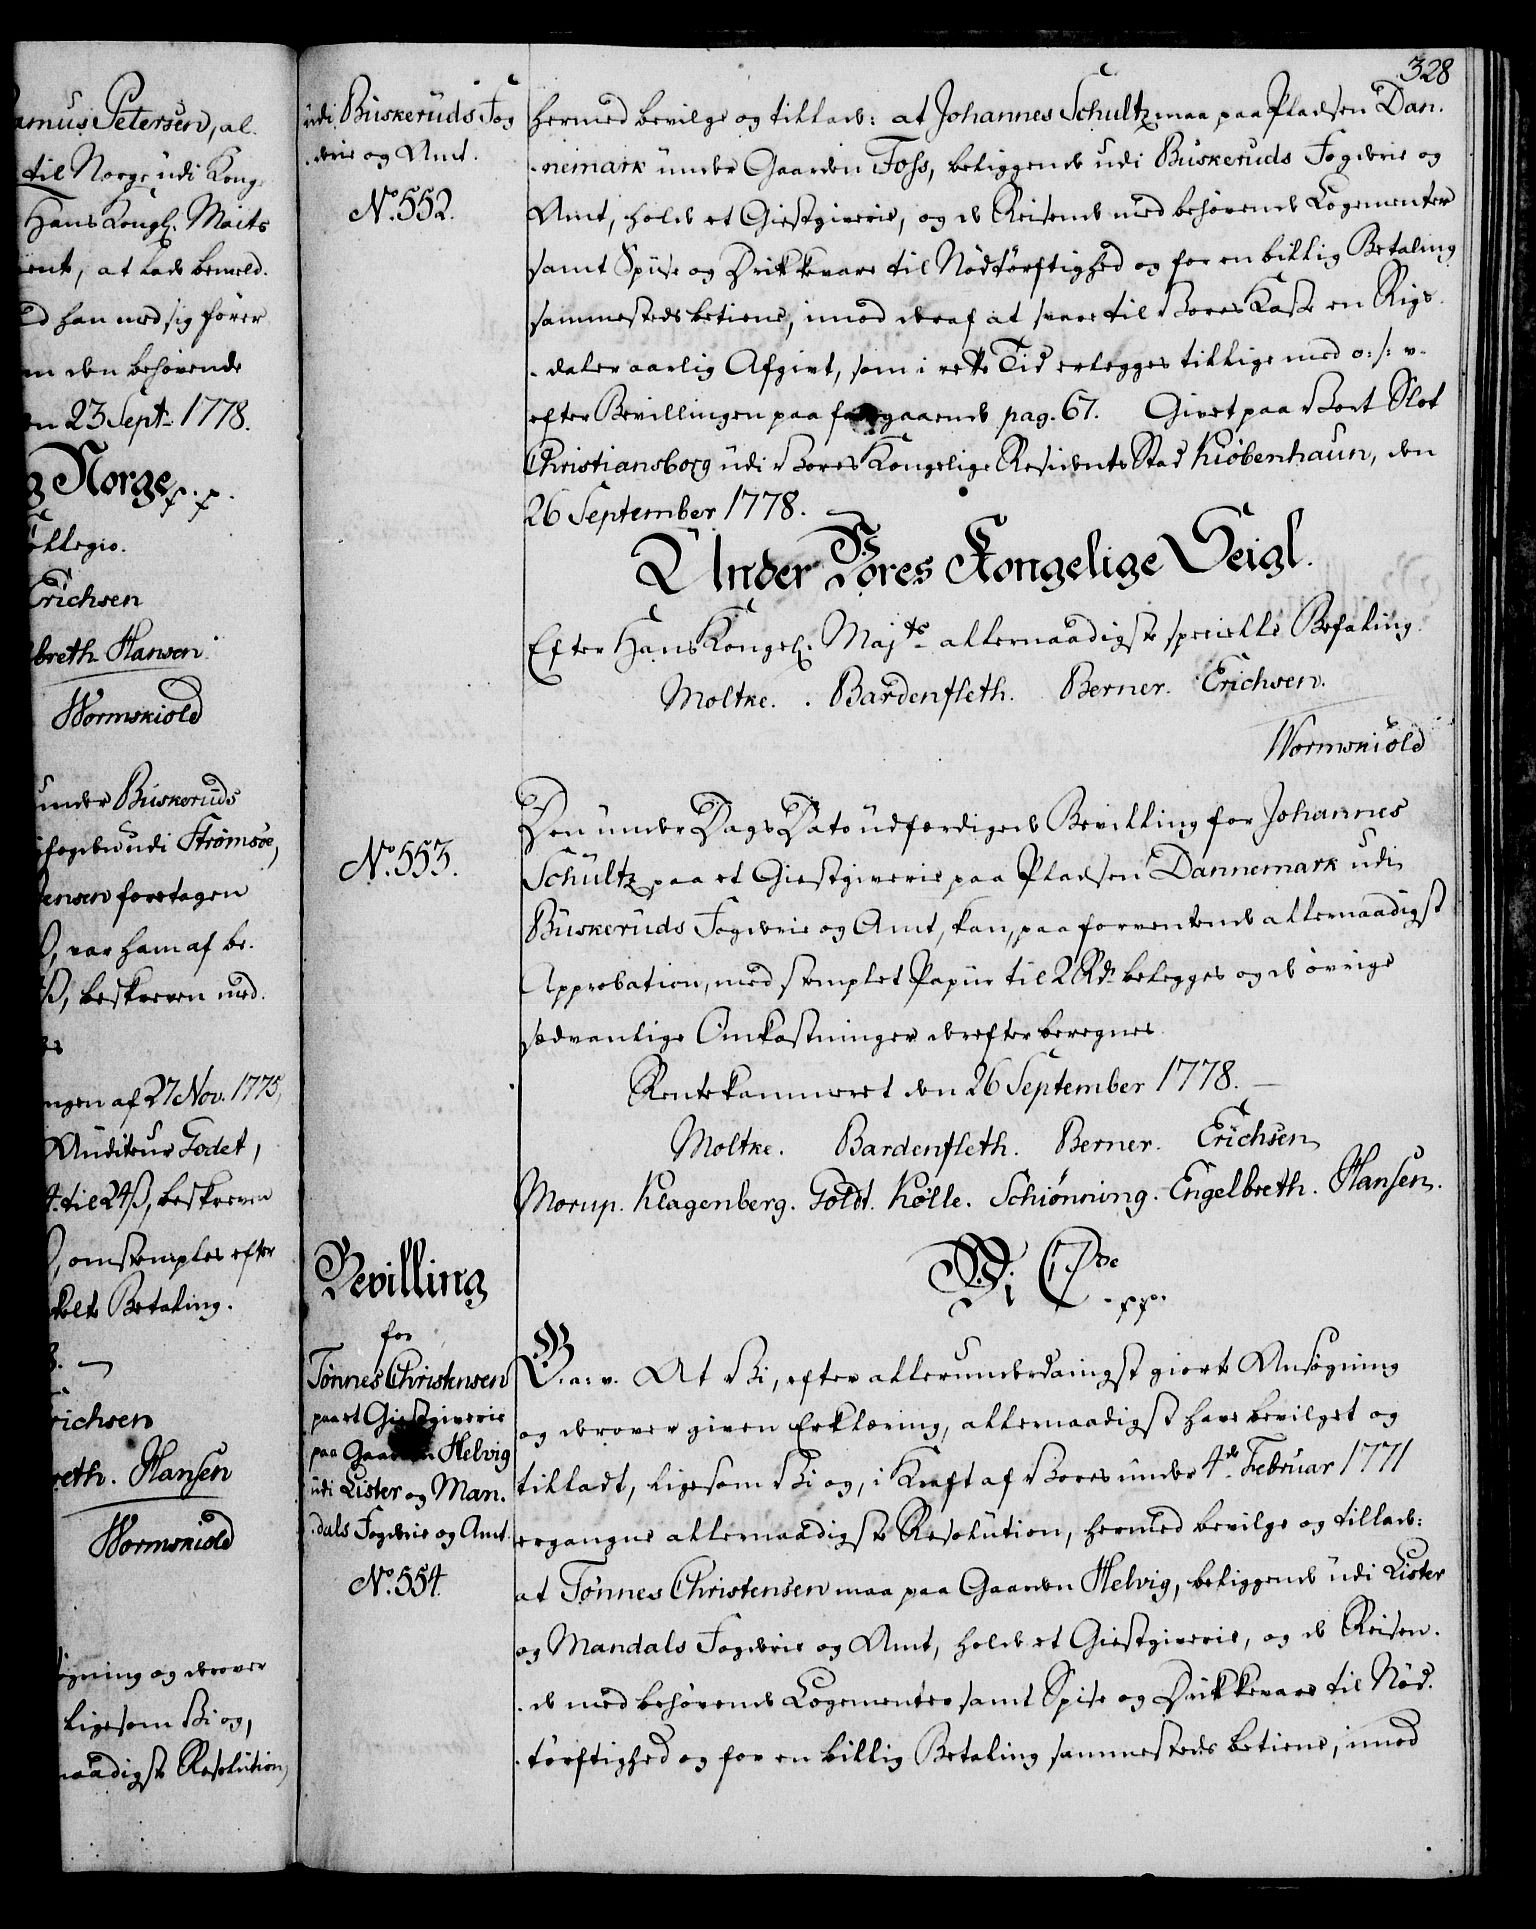 328
amus Petersen, al-
til Norge udi Kong-
Hans Kongl. Maits
ente, at lade bemeld-
d han med sig fører
en den behøvende
en 23 Septr. 1778.
g Norge p. p.
ollegio.
Erichsen
breth Hansen.
Wormskiold
under Buskeruds
udi Strømsøe,
ensen foretagen
ß, var ham af be-
ß, beskreven med-
ngen af 27 Nov. 1775,
Auditeur Godet,
til 24 ß, beskreven
, omstemples efter
Betaling.
8. —
richsen
reth. Hansen
Wormskiold
øgning og derover
ligesom Vi og,
naadigste Resolution,
udi Buskeruds Fog-
-derie og Amt.
No. 552.
hermed bevilge og tillade: at Johannes Schultz maa paa Pladsen Dan-
-nemark under Gaarden Foss, beliggende udi Buskeruds Fogderie og
Amt, holde et Giestgiverie, og de Reisende med behøvende Logementer
samt Spise og Drikkevare til Nødtørftighed og for en billig Betaling
sammesteds betiene, imod deraf at svare til Vores Kasse en Rigs-
-daler aarlig Afgivt, som i rette Tid erlegges tillige med o: s: v.
efter Bevillingen paa foregaaende pag. 67. Givet paa Vort Slot
Christiansborg udi Vores Kongelige Residents Stad Kiøbenhaun, den
26 September 1778.
Under Vores Kongelige Seigl.
Efter Hans Kongel. Majts. allernaadigste specielle Befaling.
Moltke. Bardenfleth. Berner. Erichsen.
Wormskiold
No. 553.
Den under Dags Dato udfærdigede Bevilling for Johannes
Schultz paa et Giestgiverie paa Pladsen Dannemark udi
Buskeruds Fogderie og Amt, kan, paa forventende allernaadigst
Approbation, med stemplet Papiir til 2 Rdr. belegges og de øvrige
sædvanlige Omkostninger derefter beregnes.
Rentekammeret den 26 September 1778. —
Moltke. Bardenfleth. Berner. Erichsen
Morup. Klagenberg. Goldt. Kølle. Schiønning. Engelbreth. Hansen.
Bevilling
for
Tønnes Christensen
paa et Giestgiverie
paa Gaarden Helvig
udi Lister og Man-
-dals Fogderie og Amt.
No. 554.
Vi C 7de p. p.
G. a: v. At Vi, efter allerunderdanigst giorte Ansøgning
og derover given Erklæring, allernaadigst have bevilget og
tilladt, ligesom Vi og, i Kraft af Vores under 4de Februar 1771
ergangne allernaadigste Resolution, hermed bevilge og tillade:
at Tønnes Christensen maa paa Gaarden Helvig, beliggende udi Lister
og Mandals Fogderie og Amt, holde et Giestgiverie, og de Reisen-
-de med behøvende Logementer samt Spise og Drikkevare til Nød-
-tørftighed og for en billig Betaling sammesteds betiene, imod